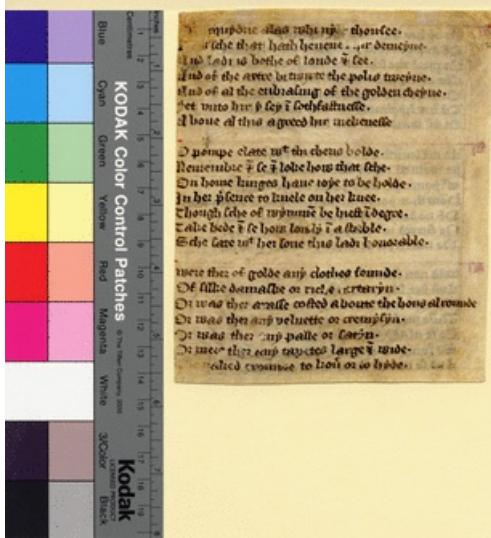 Blue
Cyan
Green
Yellow
Red
Magenta
White
3/Color
Black
KODAK Color Control Patches
© The Tiffen Company, 2000
Kodak
LICENSED PRODUCT
Centimetres
Inches
alas whi thou see
sche that hath heuene demeyne
And ladi is bothe of londe ⁊ see
And of the axtre bitwixte the polus tweyne
And of al the enbrasing of the golden cheyne
Yet vnto hir sey ī sothfastnesse
Aboue al this agreed hir mekenesse
O pompe elate wᵗ thi cheris bolde
Remembre ⁊ se ⁊ loke how that sche
On home kinges haue ioye to be holde
In her p̄sence to knele on her knee
Though sche of wymmē be hiest ī degre
Take hede ⁊ se how lowly ī a stable
Sche sate wᵗ her sone this ladi honorable
were ther of golde any clothes founde
Of silke damaske or riche tartaryn
Or was ther arasse costed aboute the hous al rounde
Or was ther any veluette or cremysyn
Or was ther any palle or satyn
Or were ther any tapetes large ⁊ wide
to hous or to hyde